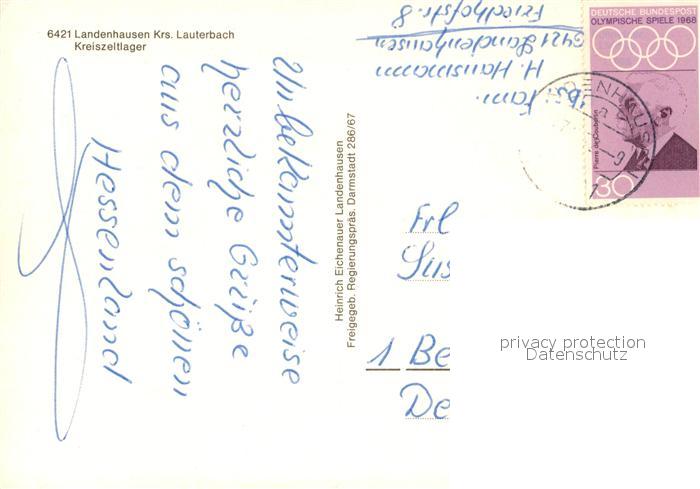 6421 Landenhausen Krs. Lauterbach
Kreiszeltlager
Unbekannterweise
herzliche Grüße
aus dem schönen
Hessenland
Heinrich Eichenauer Landenhausen
Freigegeb. Regierungspräs. Darmstadt 286/67
Abs. Fam.
H. Hausmann
6421 Landenhausen
Friedhofstr. 8
DEUTSCHE BUNDESPOST
OLYMPISCHE SPIELE 1968
Pierre de Coubertin
30
Frl
Sus
1 Be
De
privacy protection
Datenschutz